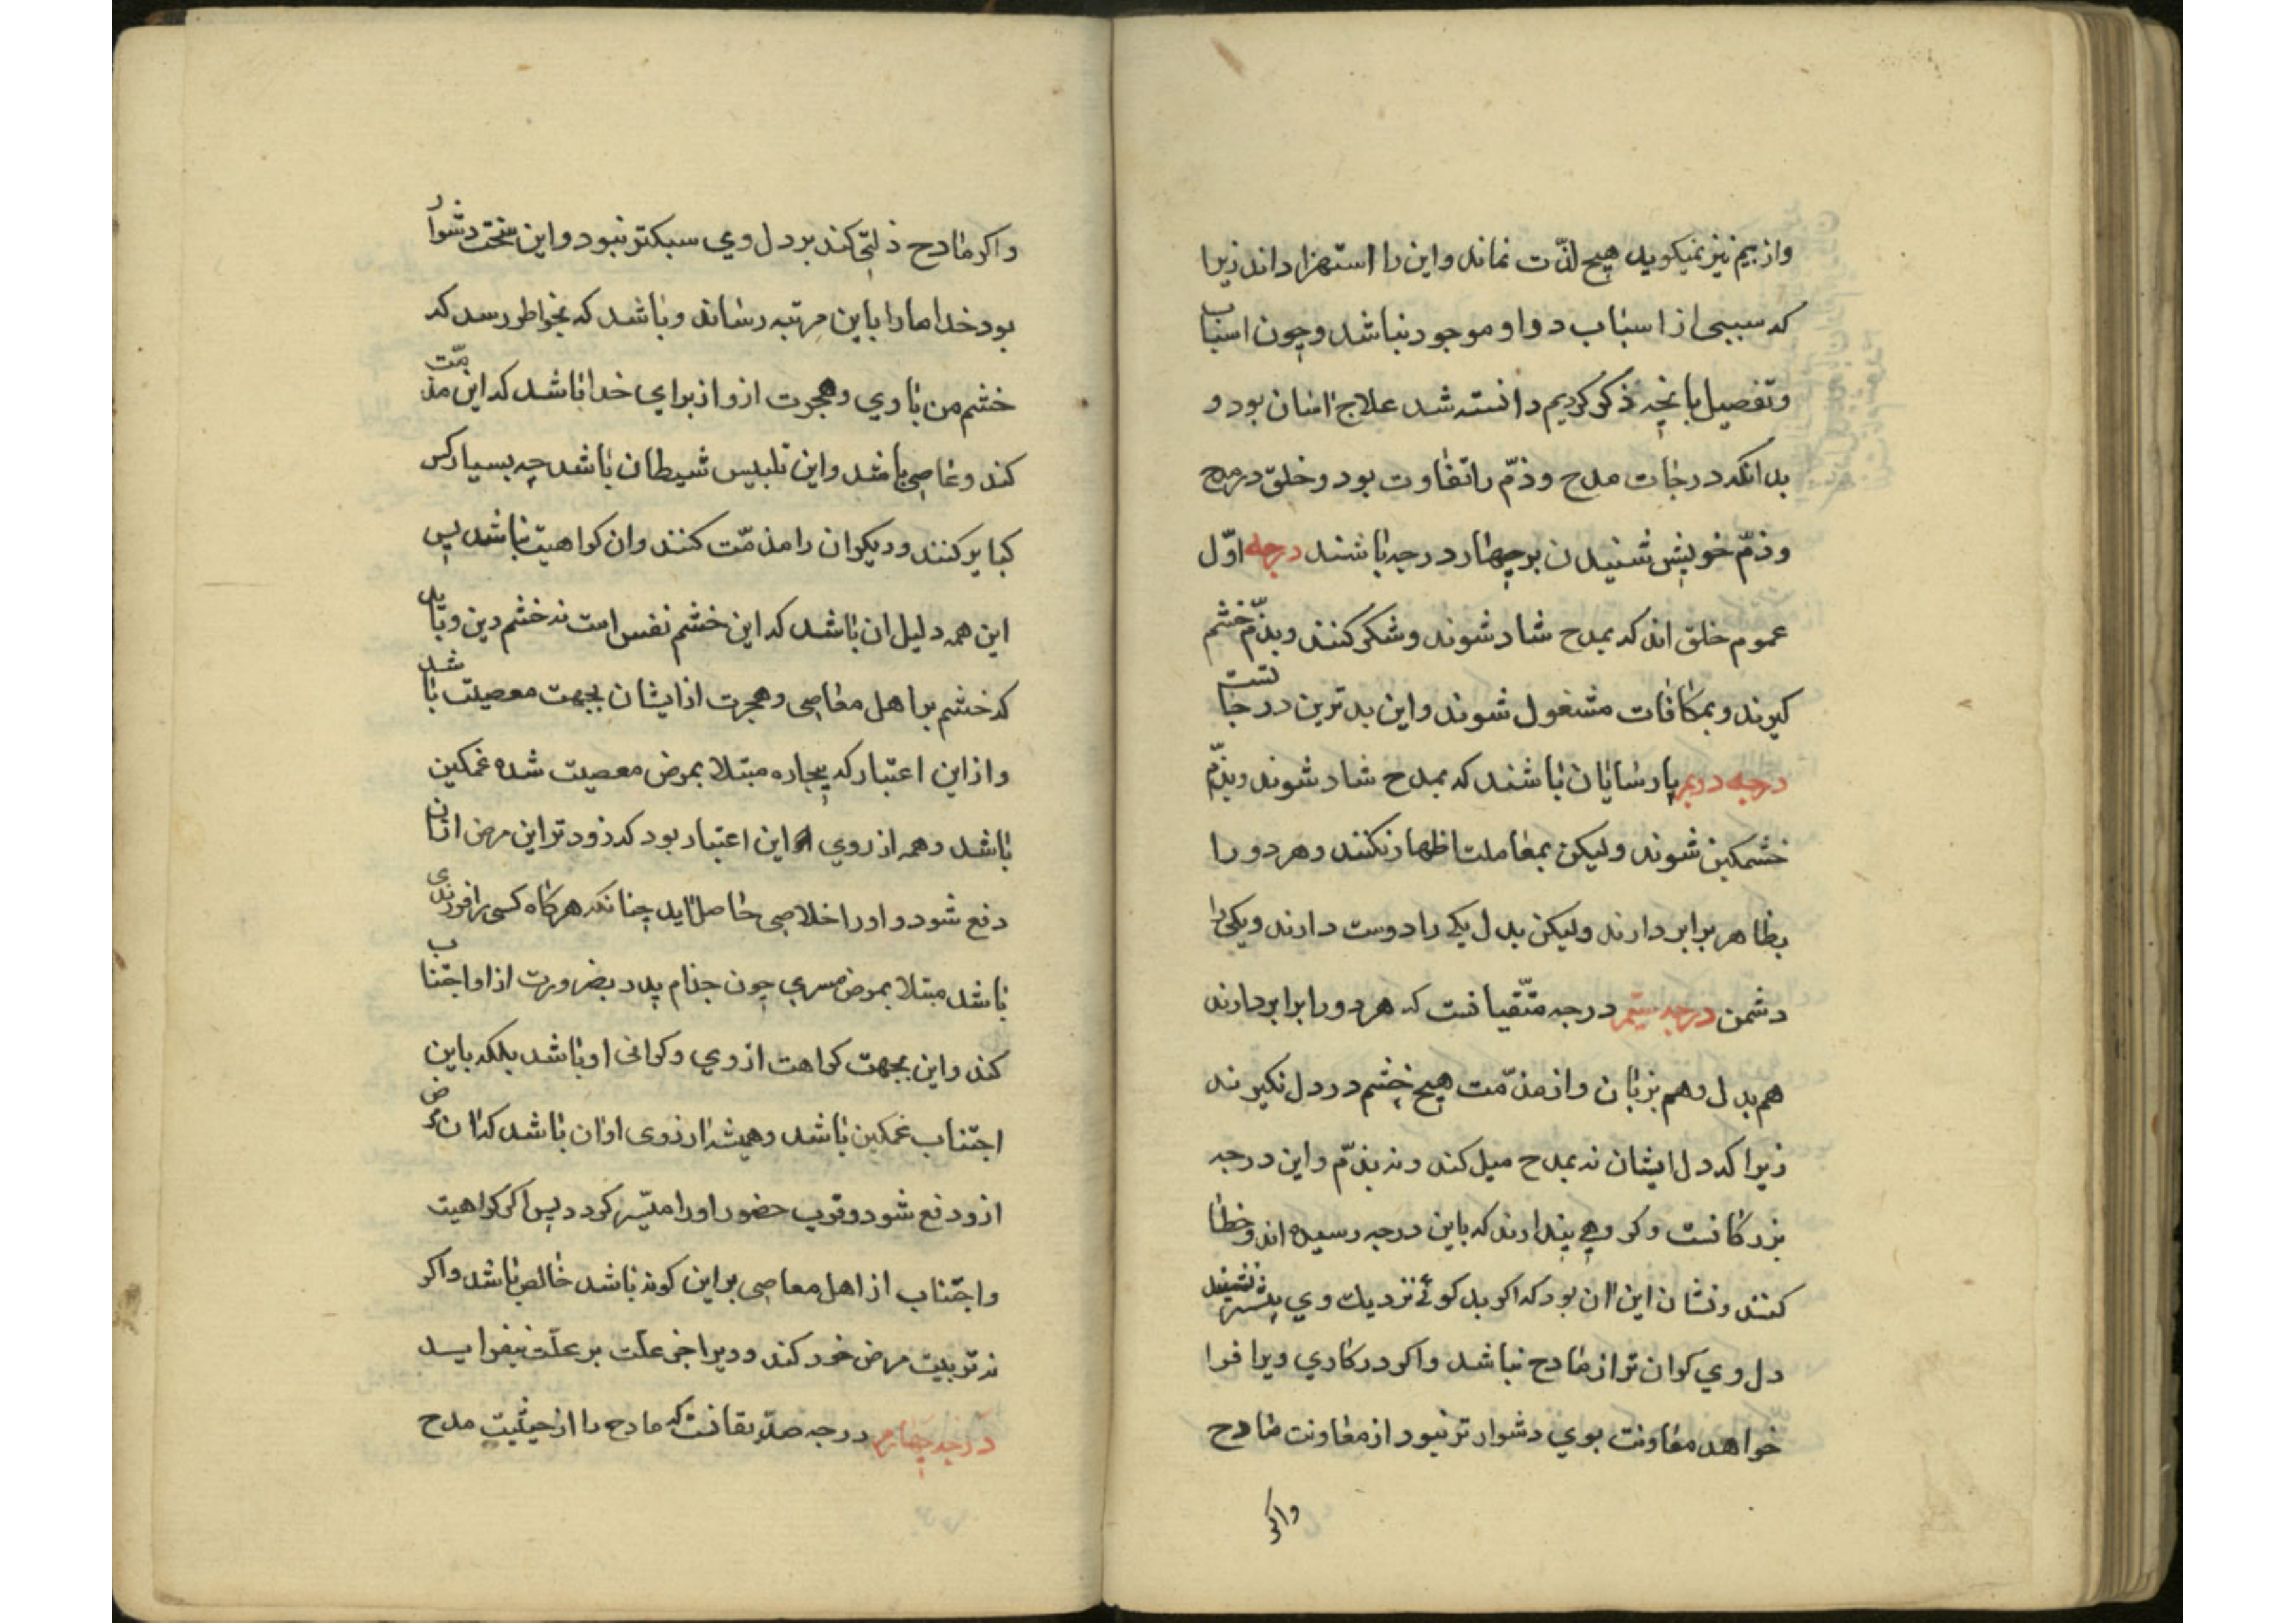 واز بیم نیز نمیکوید هیچ لذّت نماند واین را استهزا داند زیرا
که سببی از اسباب دواو موجود نباشد وچون اسباب
وتفصیل بانچه ذکر کردیم دانسته شد علاج اسان بود و
بدانکه درجات مدح وذمّ راتفاوت بود وخلق درمدح
وذمّ خویش شنیدن برچهار درجه باشند درجه اوّل
عموم خلق اند که بمدح شاد شوند وشکر کنند وبذمّ خشم
کیرند وبمکافات مشغول شوند واین بدترین درجاتست
درجه دویم پارسایان باشند که بمدح شاد شوند وبذمّ
خشمکین شوند ولیکن بمعاملت اظهار نکنند وهر دو را
بظاهر برابر دارند ولیکن بدل یکی را دوست دارند ویکی را
دشمن درجه سیّم درجه متّقیانست که هر دو را برابر دارند
هم بدل وهم بزبان واز مذمّت هیچ خشم در دل نکیرند
زیرا که دل ایشان نه بمدح میل کند ونه بذمّ واین درجه
بزرکانست وکروهی پندارند که باین درجه رسیده اند وخطا
کنند ونشان این ان بود که اکر بدکوئی نزدیک وی بیشتر نشیند
دل وی کران تر از مادح نباشد واکر در کاری ویرا فرا
خواهد معاونت بوی دشوارتر نبود از معاونت مادح
واکر
واکر مادح ذلّتی کند بر دل وی سبکتر نبود واین سخت دشوار
بود خدا مارا باین مرتبه رساند وباشد که بخواطر رسد که
خشم من باوی وهجرت ازو از برای خدا باشد که این مذمّت
کند وعاصی باشد واین تلبیس شیطان باشد چه بسیار کس
کبایر کنند ودیکران را مذمّت کنند وان کراهیت نباشد پس
این همه دلیل ان باشد که این خشم نفس است نه خشم دین وباید
که خشم بر اهل معاصی وهجرت از ایشان بجهت معصیت باشد
واز این اعتبار که بیچاره مبتلا بمرض معصیت شده غمکین
باشد وهم از روی این اعتبار بود که زودتر این مرض ازان
دفع شود و اورا خلاصی حاصل اید چنانکه هرکاه کسی را فرزندی
باشد مبتلا بمرض مسری چون جذام پدر بضرورت از او اجتناب
کند واین بجهت کراهت از وی وکرانی او نباشد بلکه باین
اجتناب غمکین باشد وهمیشه ارزوی او ان باشد که ان مرض
ازو دفع شود وقرب حضور اورا میّسر کردد پس اکر کراهیت
واجتناب از اهل معاصی براین کونه باشد خالص باشد واکر
نه تربیت مرض خود کند و دیرا خی علّت بر علّت نیفزاید
درجه چهارم درجه صدّیقانست که مادح را از حیثیت مدح